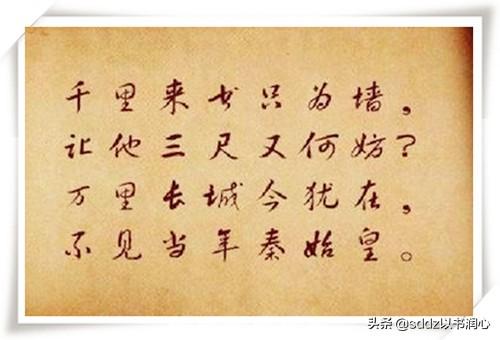 千里来书只为墙，
让他三尺又何妨？
万里长城今犹在，
不见当年秦始皇。
头条 @sddz以书润心